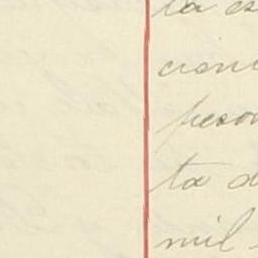 ta es
cient
peson
ta d
mil